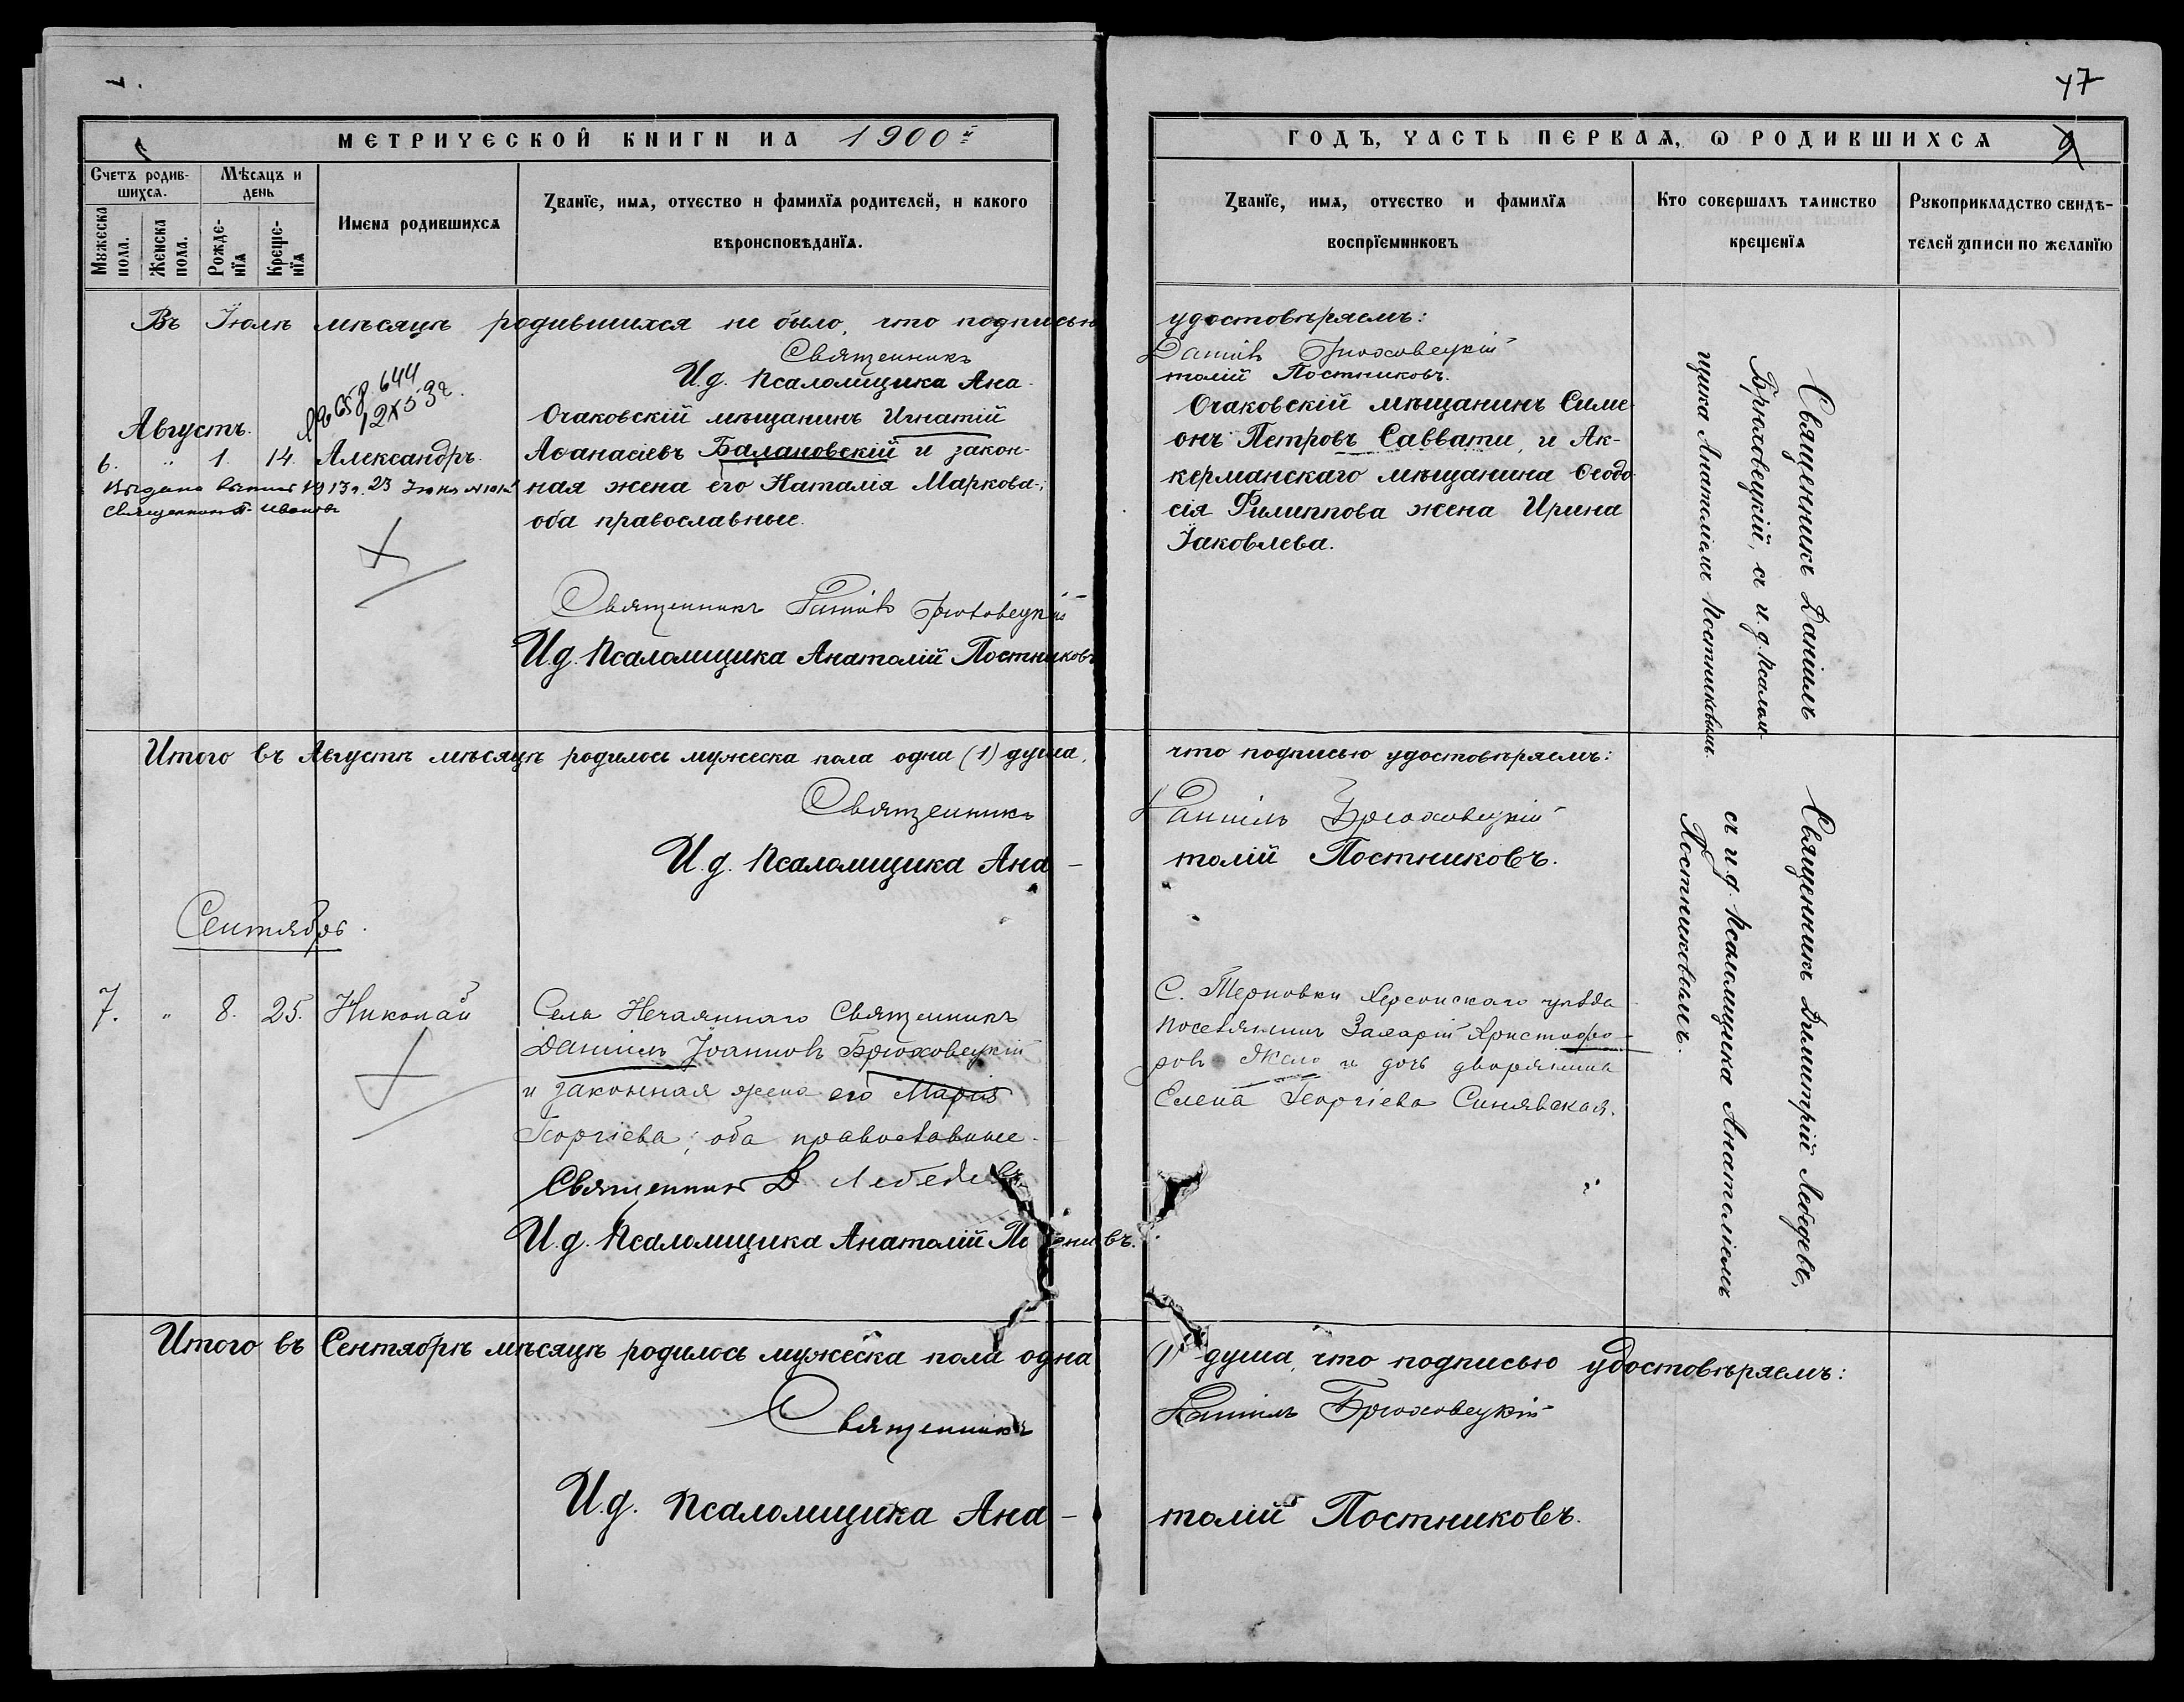 47
МЕТРИЧЕСКОЙ КНИГИ НА 1900й
ГОДЪ, ЧАСТЬ ПЕРВАЯ, Ѡ РОДИВШИХСЯ
9
Счетъ родив-
шихся.
Мѣсяцъ и
день
Мужеска
пола.
Женска
пола.
Рожде-
нїя
Креще-
нїя
Имена родившихся
Званїе, имя, отчество и фамилїя родителей, и какого
вѣроисповѣданїя.
Званїе, имя, отчество и фамилїя
воспрїемниковъ
Кто совершалъ таинство
крещенїя
Рукоприкладство свидѣ-
телей записи по желанїю
Въ Іюлѣ мѣсяцѣ родившихся не было, что подписью удостовѣряемъ:
Священникъ Даніилъ Брюховецкій
И.д. Псаломщика Ана-
толій Постниковъ.
644
12 X 53 г.
Августъ.
6. " 1. 14. Александръ.
Выдана 1913 г. 23 Іюня
Священникъ Ивановъ
Очаковскій мѣщанинъ Игнатій
Аѳанасіевъ Балановскій и закон-
ная жена его Наталія Маркова;
оба православные.
Священникъ Даніилъ Брюховецкій
И.д. Псаломщика Анатолій Постниковъ
Очаковскій мѣщанинъ Симе-
онъ Петровъ Саввати, и Ак-
керманскаго мѣщанина Ѳеодо-
сія Филиппова жена Ирина
Іаковлева.
Священникъ Даніилъ
Брюховецкій, съ и.д. Псалом-
щика Анатоліемъ Постниковымъ.
Итого въ Августѣ мѣсяцѣ родилось мужеска пола одна (1) душа, что подписью удостовѣряемъ:
Священникъ Даніилъ Брюховецкій
И.д. Псаломщика Ана-
толій Постниковъ.
Сентябрь.
7. " 8. 25. Николай
Села Нечаяннаго Священникъ
Даніилъ Іоанновъ Брюховецкій
и законная жена его Марія
Георгіева; оба православные.
Священникъ Д Лебедевъ
И.д. Псаломщика Анатолій
С. Терновки Херсонскаго уѣзда
поселянинъ Захарій Христофо-
ровъ и дочь дворянина
Елена Георгіева Синявская.
Священникъ Димитрій Лебедевъ,
съ и.д. Псаломщика Анатоліемъ
Постниковымъ.
Итого въ Сентябрѣ мѣсяцѣ родилось мужеска пола одна (1) душа, что подписью удостовѣряемъ:
Священникъ Даніилъ Брюховецкій
И.д. Псаломщика Ана-
толій Постниковъ.